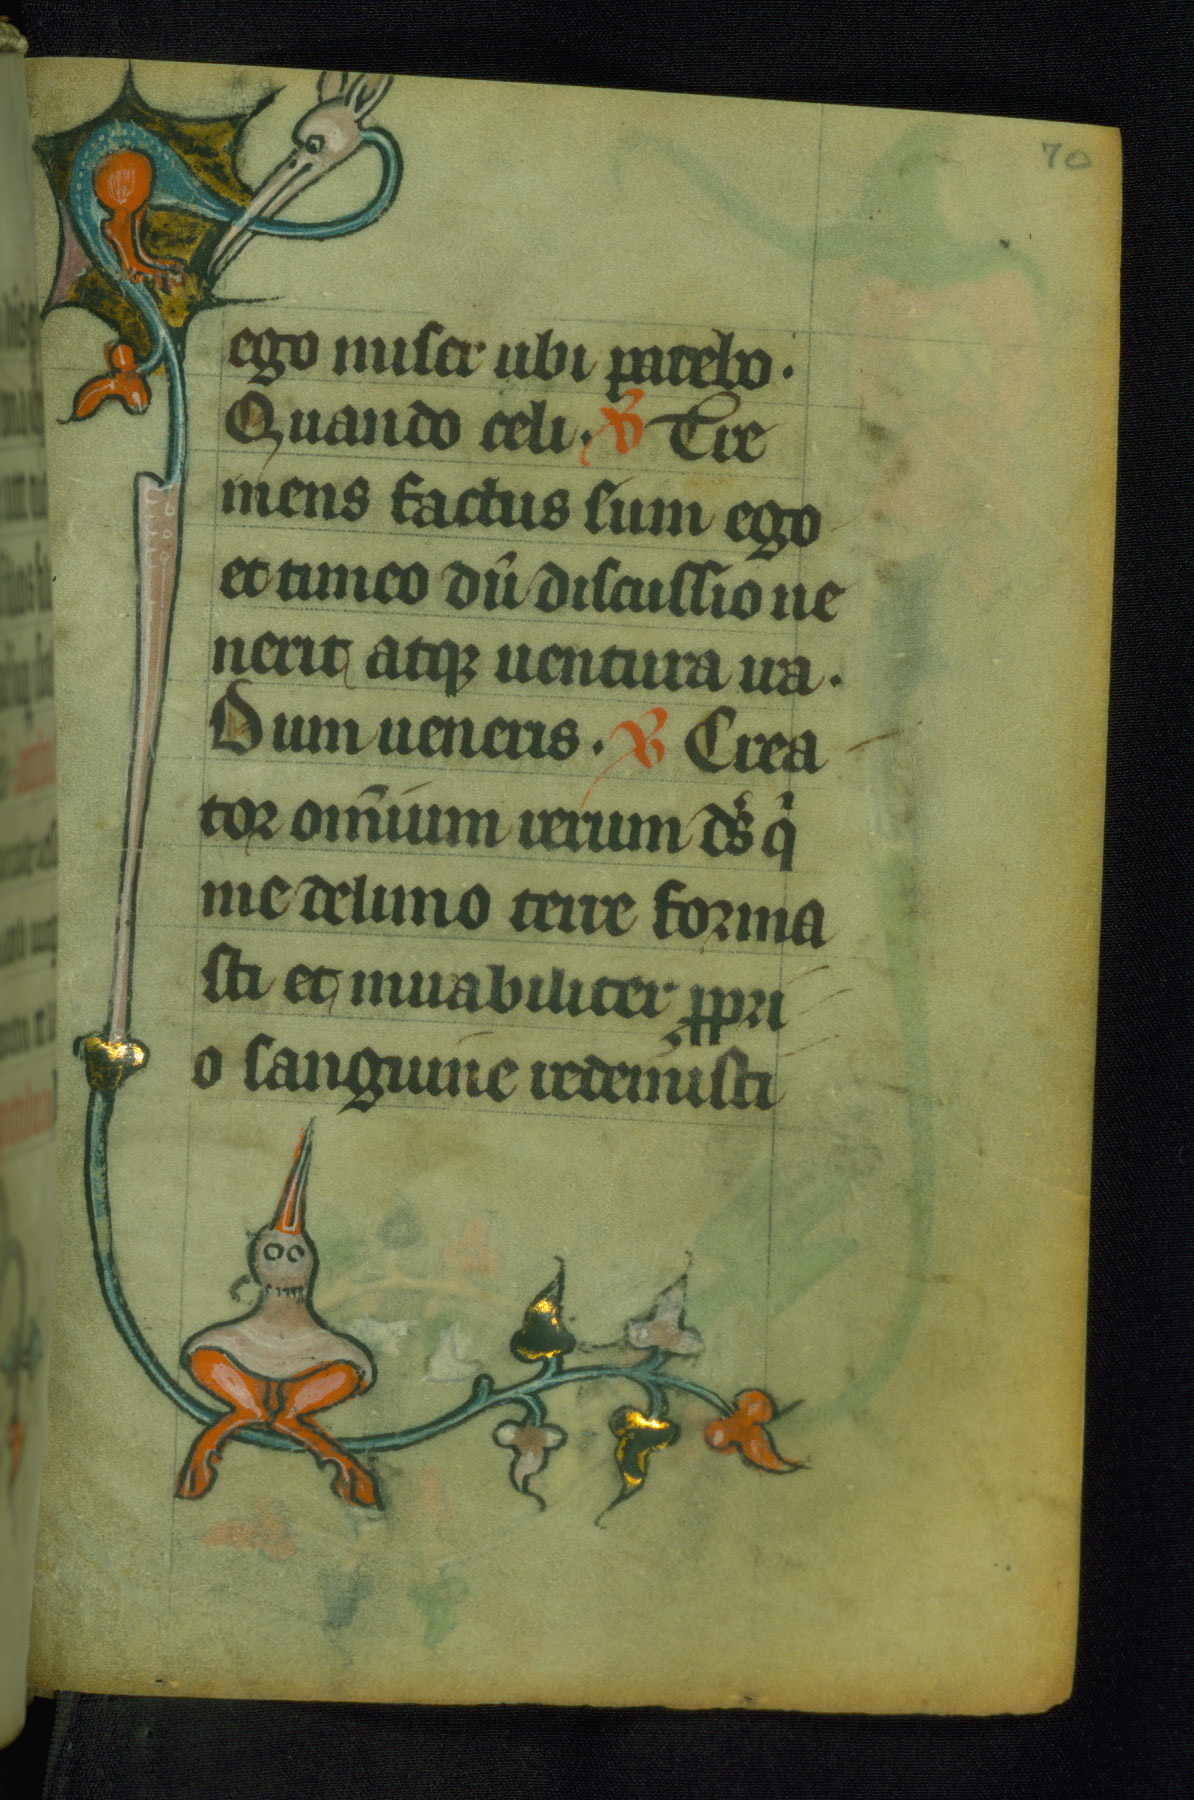 70
ego miser ubi parebo.
Quando celi. ℣ Tre
mens factus sum ego
et timeo dū discussio ue
nerit atqꝫ uentura ira.
Dum ueneris. ℣ Crea
tor om̄ium rerum ds̄ qⁱ
me de limo terre forma
sti et mirabiliter ꝓpri
o sanguine redemisti